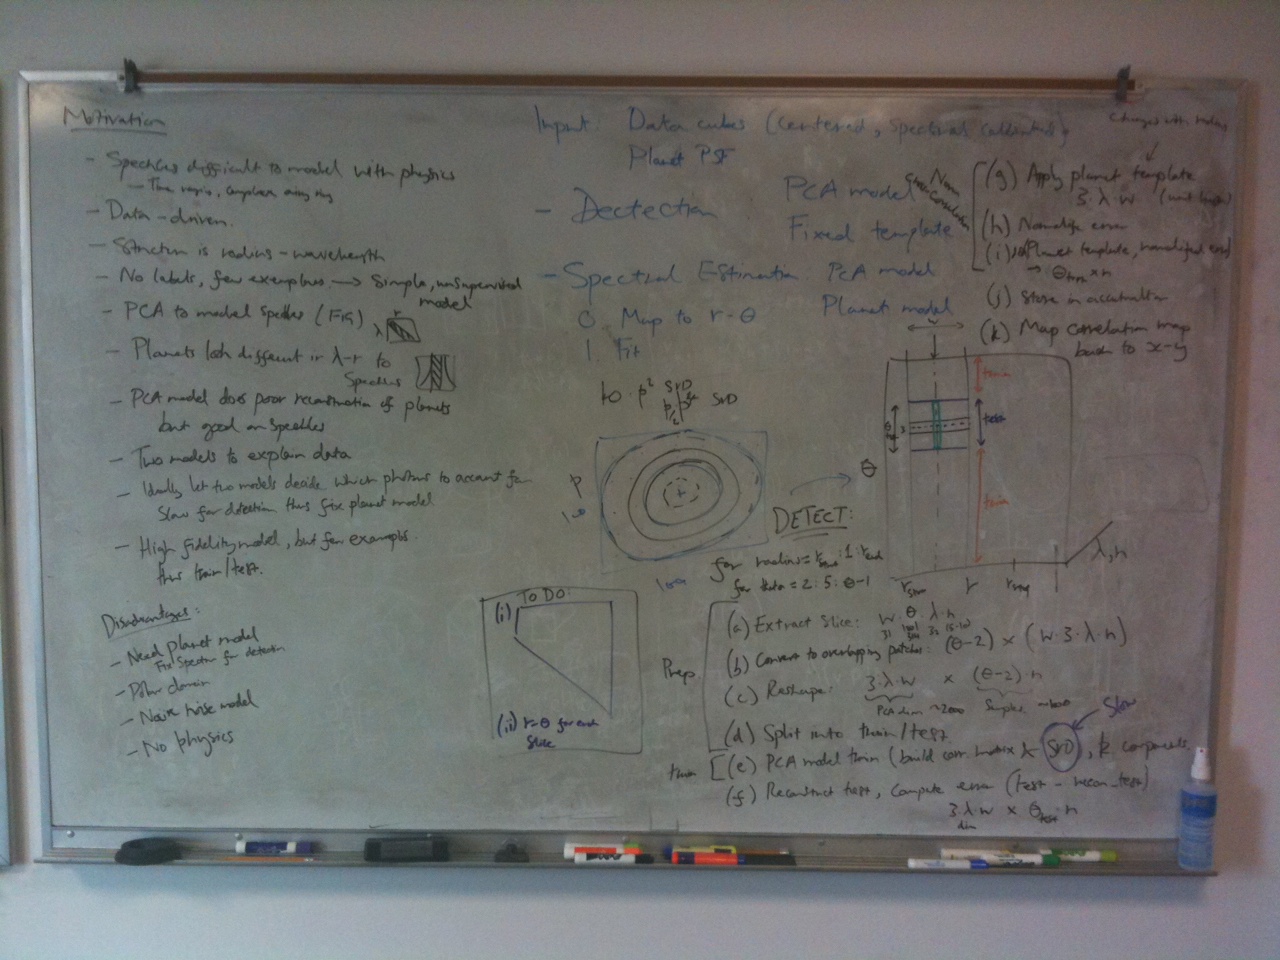 Motivation
- Speckles difficult to model with physics
- Time varying,
- Data-driven.
- Structure is radius-wavelength
- No labels, few exemplars → Simple, unsupervised model
- PCA to model speckles (FIG)
r
λ
- Planets look different in λ-r to
Speckles
- PCA model does poor reconstruction of planets
but good on speckles
- Two models to explain data
- Ideally let two models decide which photons to account for
Slow for detection thus fix planet model
- High fidelity model, but few examples.
thus train/test.
Disadvantages:
- Need planet model
Fix Spectrum for detection
- Polar domain
- Noise model
- No physics
Input: Data cubes (centered, spectral calibrated)
Planet PSF
- Dectection PCA model
Fixed template
- Spectral Estimation PCA model
Planet model
0. Map to r-θ
1. Fit
10 · p² SVD
SVD
P
100
100
DETECT:
for radius = r : 1 : r end
for theta = 2 : 5 : θ-1
TO DO:
(i)
(ii) r-θ for each
Slice
Prep
(a) Extract Slice: w · θ · λ · n
(b) Convert to overlapping patches: (θ-2) × (w · 3 · λ · n)
(c) Reshape: 3·λ·w × (θ-2)·n
PCA dim ~2000 Samples ~1000
(d) Split into train/test
Slow
train
(e) PCA model train (build corr. matrix & SVD), k components
(f) Reconstruct test, Compute error (test - recon_test)
3·λ·w × θtest·n
dim
Changes with
Norm
Cross Correlation
(g) Apply planet template
3·λ·w
(h) Normalize error
(i) Planet template, normalized error
(j) Store in accumulator
(k) Map correlation map
back to x-y
w
train
test
3
θ
train
r
λ, n